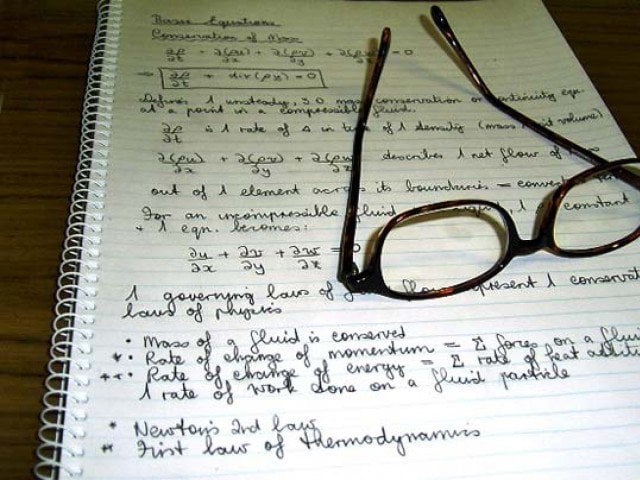 Basic Equations
Conservation of Mass
∂ρ/∂t + ∂(ρu)/∂x + ∂(ρv)/∂y + ∂(ρw)/∂z = 0
⇒ ∂ρ/∂t + div(ρu) = 0
Defines 1 unsteady, 3D mass conservation or continuity eqn.
at a point in a compressible fluid.
∂ρ/∂t is 1 rate of Δ in of 1 density (mass volume)
∂(ρu)/∂x + ∂(ρv)/∂y + ∂(ρw) describes 1 net flow of
out of 1 element across its boundaries =
For an incompressible fluid 1 constant
+ 1 eqn. becomes:
∂u/∂x + ∂v/∂y + ∂w/∂z = 0
1 governing laws of 1
laws of physics
• Mass of a fluid is conserved
* • Rate of change of momentum = Σ forces on a
** • Rate of change of energy = Σ rate of heat
1 rate of work done on a fluid particle
* Newton's 2nd law
** First law of thermodynamics